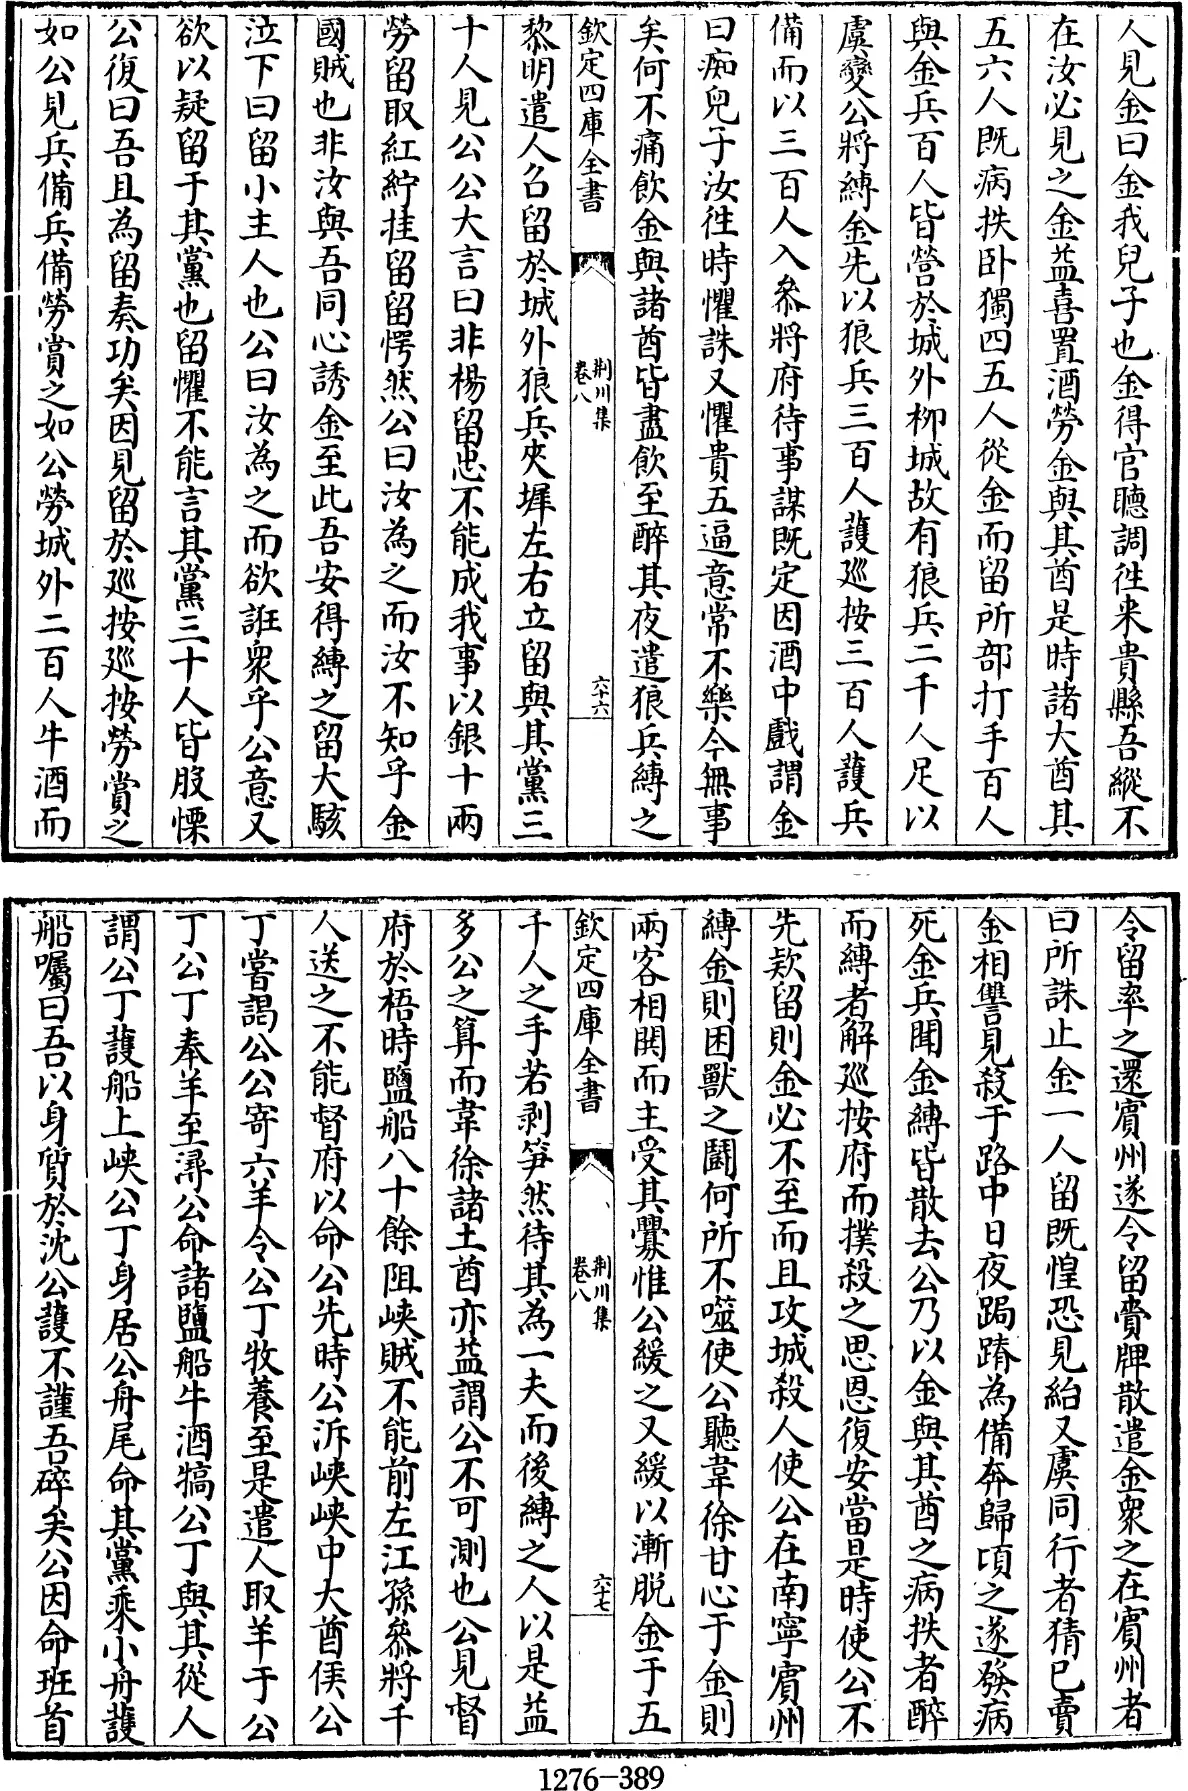 人見金曰金我兒子也金得官聽調徃来貴縣吾縱不
在汝必見之金益喜置酒勞金與其酋是時諸大酋其
五六人既病抶卧獨四五人從金而留所部打手百人
與金兵百人皆營於城外柳城故有狼兵二千人足以
虞變公將縛金先以狼兵三百人護廵按三百人護兵
備而以三百人入叅將府待事謀既定因酒中戲謂金
曰痴兒子汝徃時懼誅又懼貴五逼意常不樂今無事
矣何不痛飲金與諸酋皆盡飲至醉其夜遣狼兵縛之
欽定四庫全書
荆川集
卷八
六十六
黎明遣人召留於城外狼兵夾墀左右立留與其黨三
十人見公公大言曰非楊留忠不能成我事以銀十兩
勞留取紅紵挂留留愕然公曰汝為之而汝不知乎金
國賊也非汝與吾同心誘金至此吾安得縛之留大駭
泣下曰留小主人也公曰汝為之而欲誑衆乎公意又
欲以疑留于其黨也留懼不能言其黨三十人皆股慄
公復曰吾且為留奏功矣因見留於廵按廵按勞賞之
如公見兵備兵備勞賞之如公勞城外二百人牛酒而
令留率之還賓州遂令留賫牌散遣金衆之在賓州者
曰所誅止金一人留既惶恐見紿又虞同行者猜已賣
金相讐見殺于路中日夜跼蹐為備奔歸頃之遂發病
死金兵聞金縛皆散去公乃以金與其酋之病抶者醉
而縛者解廵按府而撲殺之思恩復安當是時使公不
先欵留則金必不至而且攻城殺人使公在南寧賓州
縛金則困獸之鬭何所不噬使公聽韋徐甘心于金則
兩客相鬨而主受其釁惟公緩之又緩以漸脱金于五
欽定四庫全書
荆川集
卷八
六十七
千人之手若剥笋然待其為一夫而後縛之人以是益
多公之算而韋徐諸土酋亦益謂公不可測也公見督
府於梧時鹽船八十餘阻峽賊不能前左江孫叅將千
人送之不能督府以命公先時公泝峽峽中大酋侯公
丁嘗謁公公寄六羊令公丁牧養至是遣人取羊于公
丁公丁奉羊至潯公命諸鹽船牛酒犒公丁與其從人
謂公丁護船上峽公丁身居公舟尾命其黨乘小舟護
船囑曰吾以身質於沈公護不謹吾碎矣公因命班首
1276-389